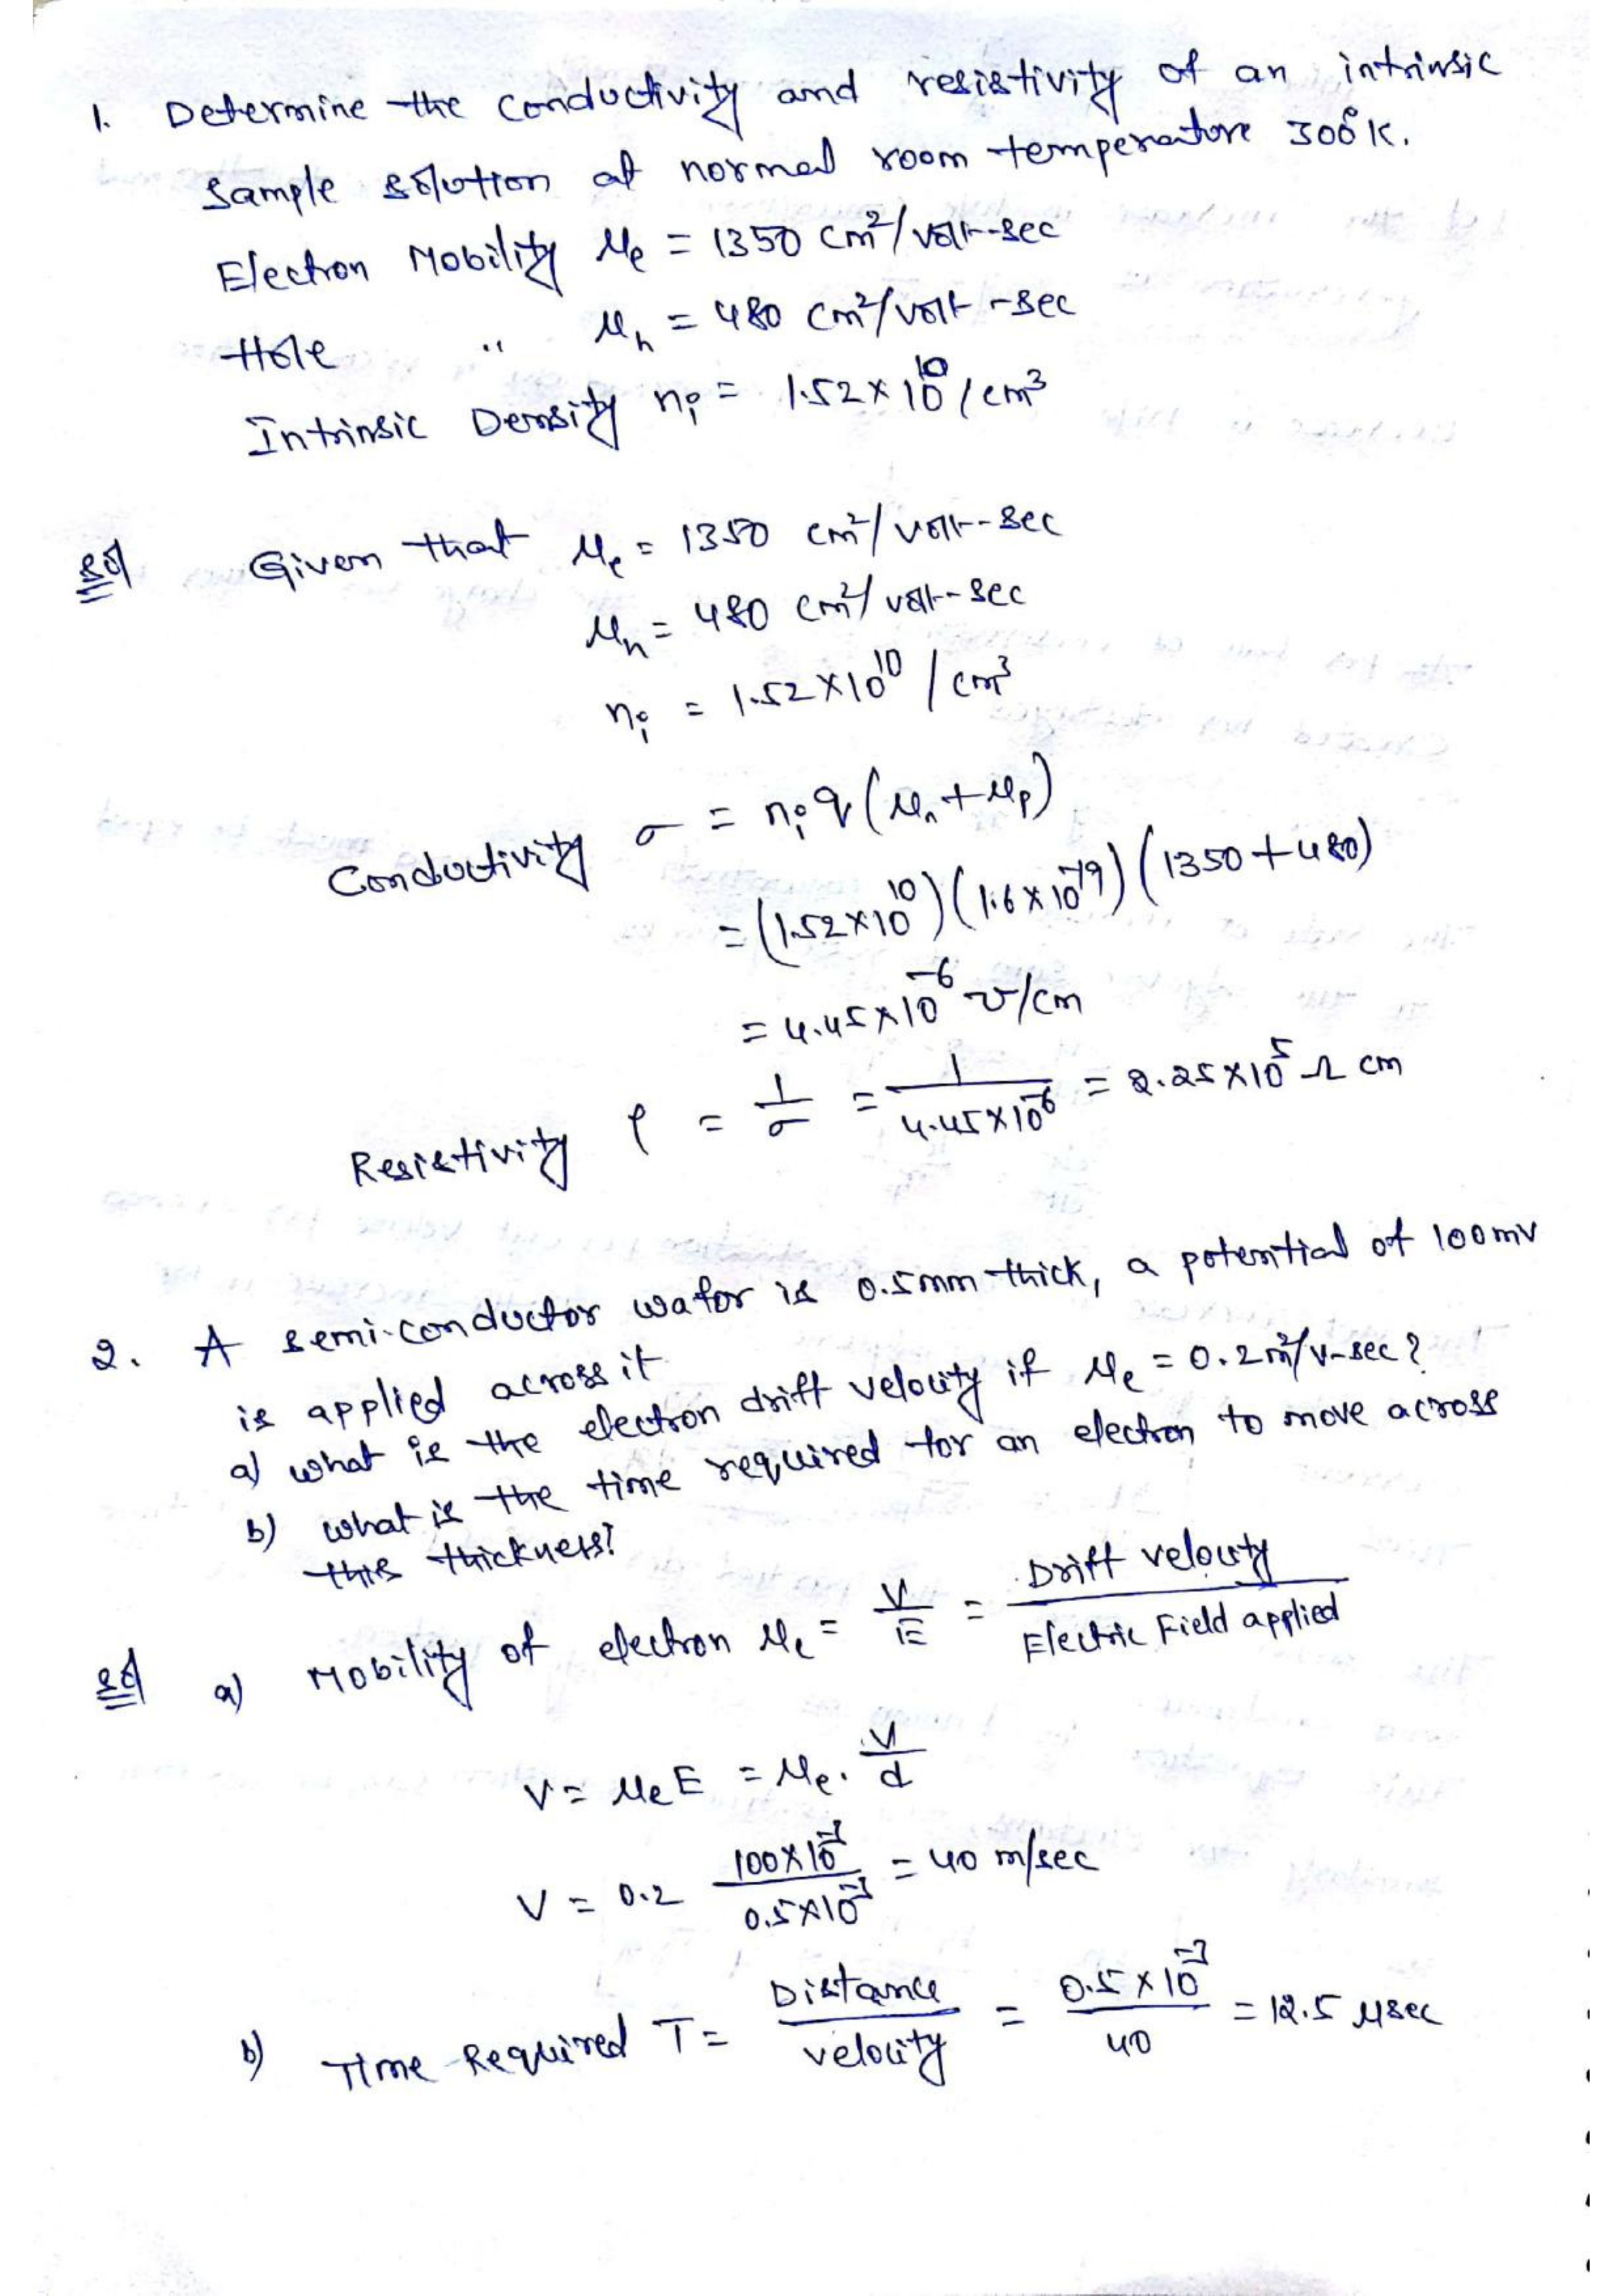 1. Determine the conductivity and resistivity of an intrinsic
sample solution at normal room temperature 300°K.
Electron Mobility μe = 1350 cm²/volt-sec
Hole " μh = 480 cm²/volt-sec
Intrinsic Density ni = 1.52×10^10/cm³
Sol Given that μe = 1350 cm²/volt-sec
μh = 480 cm²/volt-sec
ni = 1.52×10^10 / cm³
Conductivity σ = ni q (μn + μp)
= (1.52×10^10)(1.6×10^-19)(1350+480)
= 4.45×10^-6 ℧/cm
Resistivity ρ = 1/σ = 1/4.45×10^-6 = 2.25×10^5 Ω cm
2. A semi-conductor wafor is 0.5mm thick, a potential of 100mv
is applied across it
a) what is the electron drift velocity if μe = 0.2m²/v-sec?
b) what is the time required for an electron to move across
this thickness?
Sol a) Mobility of electron μe = V/E = Drift velocity/Electric Field applied
V = μe E = μe. V/d
V = 0.2 100×10^-3/0.5×10^-3 = 40 m/sec
b) Time Required T = Distance/velocity = 0.5×10^-3/40 = 12.5 μsec